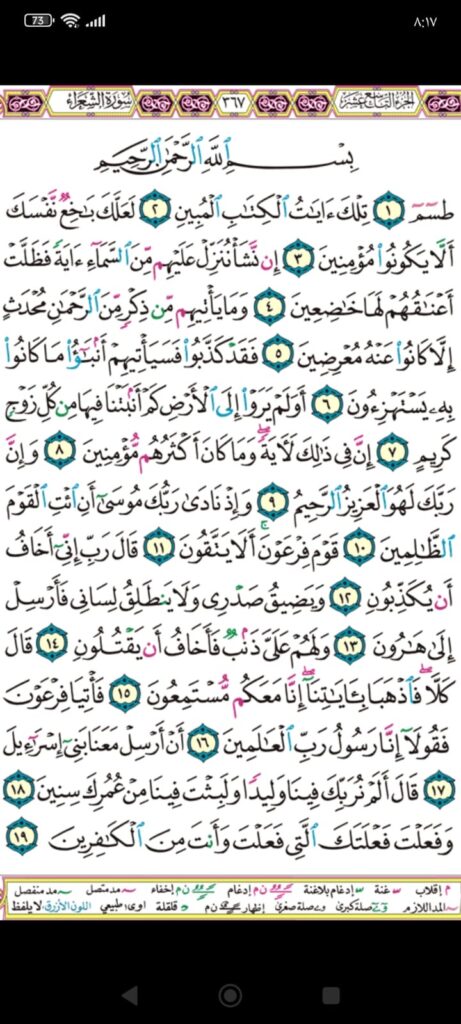 73 ٨:١٧
الجزء التاسع عشر ٣٦٧ سورة الشعراء
بِسْمِ ٱللَّهِ ٱلرَّحْمَٰنِ ٱلرَّحِيمِ
طسٓمٓ ١ تِلْكَ ءَايَٰتُ ٱلْكِتَٰبِ ٱلْمُبِينِ ٢ لَعَلَّكَ بَٰخِعٌ نَّفْسَكَ
أَلَّا يَكُونُوا۟ مُؤْمِنِينَ ٣ إِن نَّشَأْ نُنَزِّلْ عَلَيْهِم مِّنَ ٱلسَّمَآءِ ءَايَةً فَظَلَّتْ
أَعْنَٰقُهُمْ لَهَا خَٰضِعِينَ ٤ وَمَا يَأْتِيهِم مِّن ذِكْرٍ مِّنَ ٱلرَّحْمَٰنِ مُحْدَثٍ
إِلَّا كَانُوا۟ عَنْهُ مُعْرِضِينَ ٥ فَقَدْ كَذَّبُوا۟ فَسَيَأْتِيهِمْ أَنۢبَٰٓؤُا۟ مَا كَانُوا۟
بِهِۦ يَسْتَهْزِءُونَ ٦ أَوَلَمْ يَرَوْا۟ إِلَى ٱلْأَرْضِ كَمْ أَنۢبَتْنَا فِيهَا مِن كُلِّ زَوْجٍ
كَرِيمٍ ٧ إِنَّ فِى ذَٰلِكَ لَءَايَةً ۖ وَمَا كَانَ أَكْثَرُهُم مُّؤْمِنِينَ ٨ وَإِنَّ
رَبَّكَ لَهُوَ ٱلْعَزِيزُ ٱلرَّحِيمُ ٩ وَإِذْ نَادَىٰ رَبُّكَ مُوسَىٰٓ أَنِ ٱئْتِ ٱلْقَوْمَ
ٱلظَّٰلِمِينَ ١٠ قَوْمَ فِرْعَوْنَ ۚ أَلَا يَتَّقُونَ ١١ قَالَ رَبِّ إِنِّىٓ أَخَافُ
أَن يُكَذِّبُونِ ١٢ وَيَضِيقُ صَدْرِى وَلَا يَنطَلِقُ لِسَانِى فَأَرْسِلْ
إِلَىٰ هَٰرُونَ ١٣ وَلَهُمْ عَلَىَّ ذَنۢبٌ فَأَخَافُ أَن يَقْتُلُونِ ١٤ قَالَ
كَلَّا ۖ فَٱذْهَبَا بِـَٔايَٰتِنَآ ۖ إِنَّا مَعَكُم مُّسْتَمِعُونَ ١٥ فَأْتِيَا فِرْعَوْنَ
فَقُولَآ إِنَّا رَسُولُ رَبِّ ٱلْعَٰلَمِينَ ١٦ أَنْ أَرْسِلْ مَعَنَا بَنِىٓ إِسْرَٰٓءِيلَ
١٧ قَالَ أَلَمْ نُرَبِّكَ فِينَا وَلِيدًا وَلَبِثْتَ فِينَا مِنْ عُمُرِكَ سِنِينَ ١٨
وَفَعَلْتَ فَعْلَتَكَ ٱلَّتِى فَعَلْتَ وَأَنتَ مِنَ ٱلْكَٰفِرِينَ ١٩
م إقلاب غنة إدغام بلاغنة ن م إدغام ن م إخفاء مد متصل مد منفصل
المد اللازم صلة كبرى صلة صغرى إظهار ن م قلقلة اوى طبيعي اللون الأزرق لا يلفظ